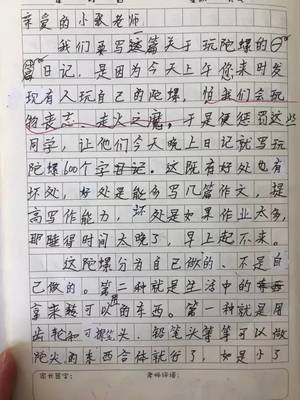 亲爱的小歌老师:
我们要写这篇关于玩陀螺的
日记,是因为今天上午您来时发
现有人玩自己的陀螺,怕我们会玩
物丧志、走火之魔,于是便惩罚这些
同学,让他们今天晚上日记就写玩
陀螺600个字。这既有好处也有
坏处,好处是能多写几篇作文,提
高写作能力,坏处是如果作业太多,
那睡得时间太晚了,早上起不来。
这陀螺分为自己做的、不是自
己做的。第二种就是生活中的
拿来就可以的东西。第一种就是用
齿轮和可擦笔头、铅笔头等等可以做
陀尖的东西合体就行了,如是小了
家长签字: 老师评语: